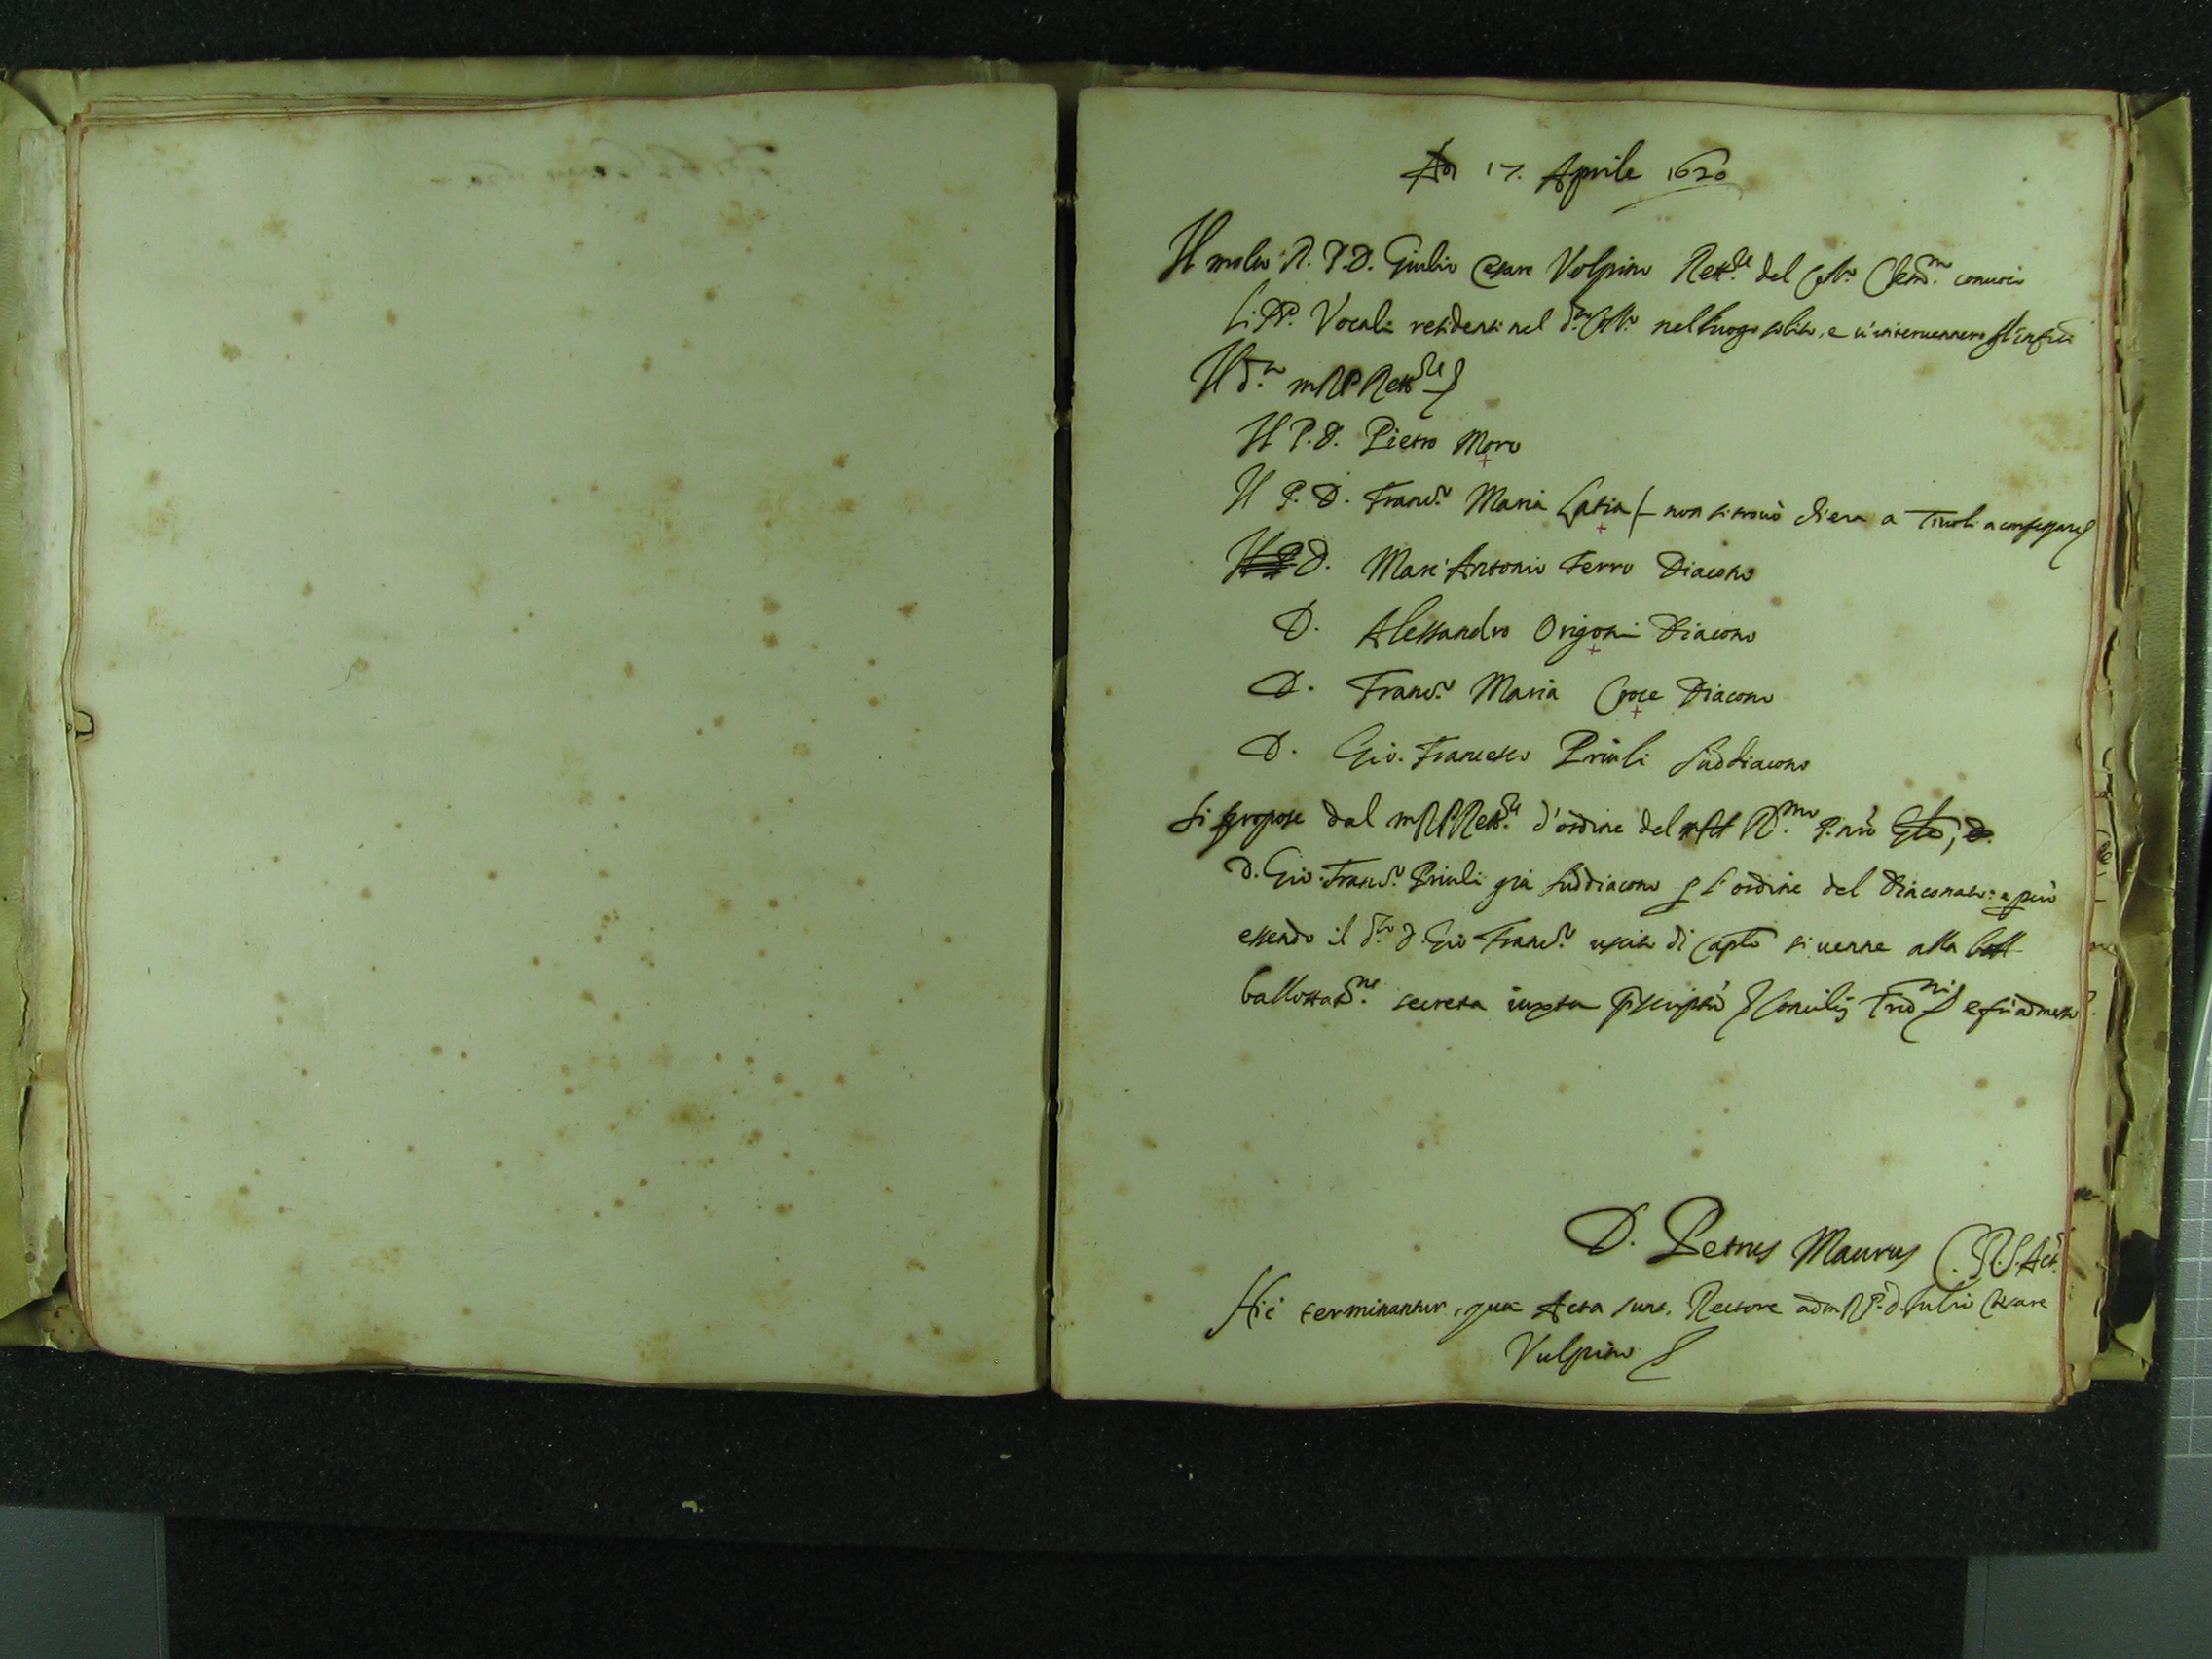 17. Aprile 1620
Il molto R. P. D. Giulio Cesare Volpino Rett.re del Coll.o Clem.no convocò
li PP. Vocali residenti nel d.to Coll.o nel luogo solito, e v'intervennero gl'infri
Il d.to m R P Rett.re
Il P. D. Pietro Moro
Il P. D. Franc.o Maria Latia non si trovò ch'era a Tivoli a confessare
D. Marc'Antonio Ferro Diacono
D. Alessandro Origoni Diacono
D. Franc.o Maria Croce Diacono
D. Gio. Francesco Priuli suddiacono
Si propose dal m R P Rett.re d'ordine del R.mo P. nro Gle,
D. Gio. Franc.o Priuli già suddiacono p l'ordine del Diaconato: e però
essendo il d.to D. Gio Franc.o uscito di Caplo si venne alla
ballottat.ne secreta iuxta pscriptu Concilij Trid.ni e fù admesso
D. Petrus Maurus C. R. S. Act.
Hic terminantur, quae Acta sunt, Rectore adm R P. D. Iulio Cesare
Vulpino